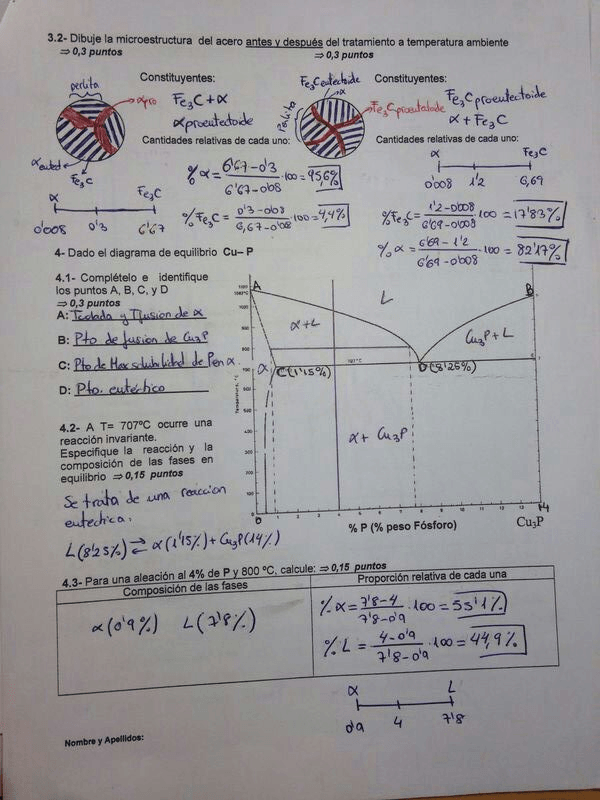 3.2- Dibuje la microestructura del acero antes y después del tratamiento a temperatura ambiente
⇒ 0,3 puntos ⇒ 0,3 puntos
Constituyentes:
perlita
αpro
Fe3C + α
αproeutectoide
αeutect
Fe3C
Cantidades relativas de cada uno:
% α = 6'67-0'3 / 6'67-0'08 · 100 = 95,6%
% Fe3C = 0'3-0'08 / 6,67-0'08 · 100 = 4,4%
α Fe3C
0'008 0'3 6'67
Constituyentes:
Fe3C eutectoide
α
Perlita
Fe3C proeutectoide
Fe3C proeutectoide
α + Fe3C
Cantidades relativas de cada uno:
α Fe3C
0'008 1'2 6,69
% Fe3C = 1'2-0'008 / 6'69-0'008 · 100 = 17'83%
% α = 6'69-1'2 / 6'69-0'008 · 100 = 82'17%
4- Dado el diagrama de equilibrio Cu– P
4.1- Complételo e identifique
los puntos A, B, C, y D
⇒ 0,3 puntos
A: Tsolada y Tfusion de α
B: Pto de fusion de Cu3P
C: Pto de Max solubilidad de P en α
D: Pto. eutéctico
4.2- A T= 707ºC ocurre una
reacción invariante.
Especifique la reacción y la
composición de las fases en
equilibrio ⇒ 0,15 puntos
Se trata de una reaccion
eutectica.
L(8'25%) ⇄ α(1'15%) + Cu3P(14%)
A
L
B
α + L
Cu3P + L
α
C(1'15%)
707°C
D(8'25%)
α + Cu3P
Temperatura, °C
1100
1000
900
800
700
600
500
400
300
200
100
0 1 2 3 4 5 6 7 8 9 10 11 12 13 14
% P (% peso Fósforo)
Cu3P
4.3- Para una aleación al 4% de P y 800 ºC, calcule: ⇒ 0,15 puntos
Composición de las fases
Proporción relativa de cada una
α(0'9%) L(7'8%)
% α = 7'8-4 / 7'8-0'9 · 100 = 55'1%
% L = 4-0'9 / 7'8-0'9 · 100 = 44,9%
α L
0'9 4 7'8
Nombre y Apellidos: